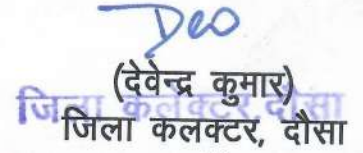 Deo
(देवेन्द्र कुमार)
जिला कलक्टर, दौसा
जिला कलक्टर, दौसा